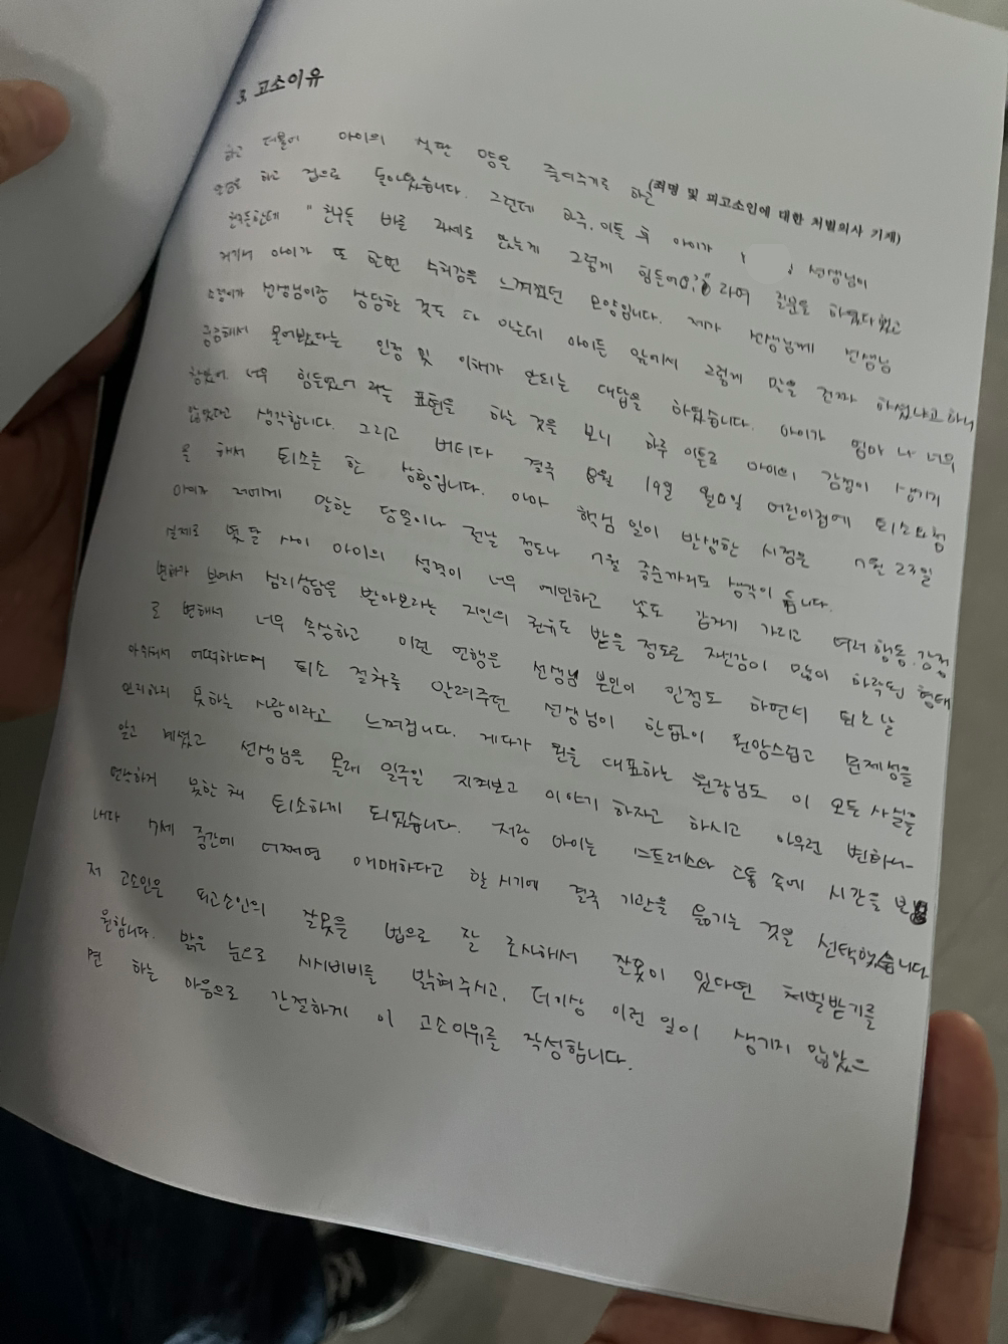 3. 고소이유
(죄명 및 피고소인에 대한 처벌의사 기재)
하고 더불어 아이의 식판 양을 줄여주기로 하는
하고 집으로 돌아왔습니다. 그런데 하루, 이틀 후 아이가 선생님이
친구들한테 "친구들 바른 자세로 앉는게 그렇게 힘들어?"라며 질문을 하였다 했고
거기서 아이가 또 한번 수치감을 느껴졌던 모양입니다. 제가 선생님께 선생님
선생님이랑 상담한 것도 다 아는데 아이들 앞에서 그렇게 말을 진짜 하셨냐고 하니
궁금해서 물어봤다는 인정 및 이해가 안되는 대답을 하였습니다. 아이가 엄마 나 너무
힘들었어 너무 힘들었어 라는 표현을 하는 것을 보니 하루 이틀로 아이의 감정이 생기지
않았다고 생각합니다. 그리고 버티다 결국 8월 19일 월요일 어린이집에 퇴소요청
을 해서 퇴소를 한 상황입니다. 아마 핵심 일이 발생한 시점은 7월 23일
아이가 저에게 말한 당일이나 전날 정도나 7월 중순까지도 생각이 듭니다.
실제로 몇달 사이 아이의 성격이 너무 예민하고 낯도 갑자기 가리고 여러 행동, 감정
변화가 보여서 심리상담을 받아보라는 지인의 권유도 받을 정도로 자신감이 많이 하락된 형태
로 변해서 너무 속상하고 이런 언행을 선생님 본인이 인정도 하면서 퇴소날
아쉬워서 어떡하냐며 퇴소 절차를 알려주던 선생님이 한없이 원망스럽고 문제성을
인지하지 못하는 사람이라고 느껴집니다. 게다가 원을 대표하는 원장님도 이 모든 사실을
알고 계셨고 선생님을 몰래 일주일 지켜보고 이야기 하자고 하시고 아무런 변화-
못한 채 퇴소하게 되었습니다. 저랑 아이는 스트레스와 고통 속에 시간을 보
내다 7세 중간에 어쩌면 애매하다고 할 시기에 결국 기관을 옮기는 것을 선택했습니다
저 고소인은 피고소인의 잘못을 법으로 잘 조사해서 잘못이 있다면 처벌받기를
원합니다. 밝은 눈으로 시시비비를 밝혀주시고, 더이상 이런 일이 생기지 않았으
면 하는 마음으로 간절하게 이 고소이유를 작성합니다.